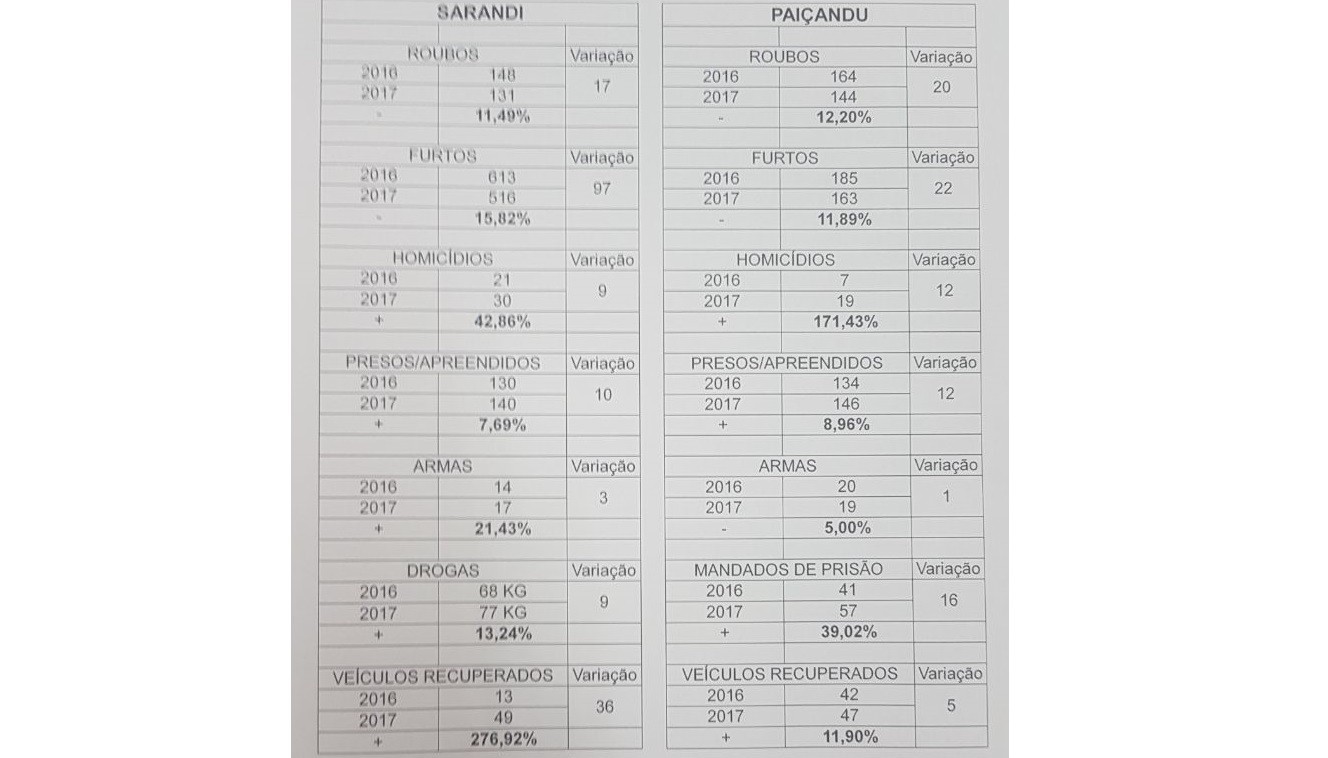 SARANDI
ROUBOS Variação
2016 148 17
2017 131
- 11,49%
FURTOS Variação
2016 613 97
2017 516
- 15,82%
HOMICÍDIOS Variação
2016 21 9
2017 30
+ 42,86%
PRESOS/APREENDIDOS Variação
2016 130 10
2017 140
+ 7,69%
ARMAS Variação
2016 14 3
2017 17
+ 21,43%
DROGAS Variação
2016 68 KG 9
2017 77 KG
+ 13,24%
VEÍCULOS RECUPERADOS Variação
2016 13 36
2017 49
+ 276,92%
PAIÇANDU
ROUBOS Variação
2016 164 20
2017 144
- 12,20%
FURTOS Variação
2016 185 22
2017 163
- 11,89%
HOMICÍDIOS Variação
2016 7 12
2017 19
+ 171,43%
PRESOS/APREENDIDOS Variação
2016 134 12
2017 146
+ 8,96%
ARMAS Variação
2016 20 1
2017 19
- 5,00%
MANDADOS DE PRISÃO Variação
2016 41 16
2017 57
+ 39,02%
VEÍCULOS RECUPERADOS Variação
2016 42 5
2017 47
+ 11,90%